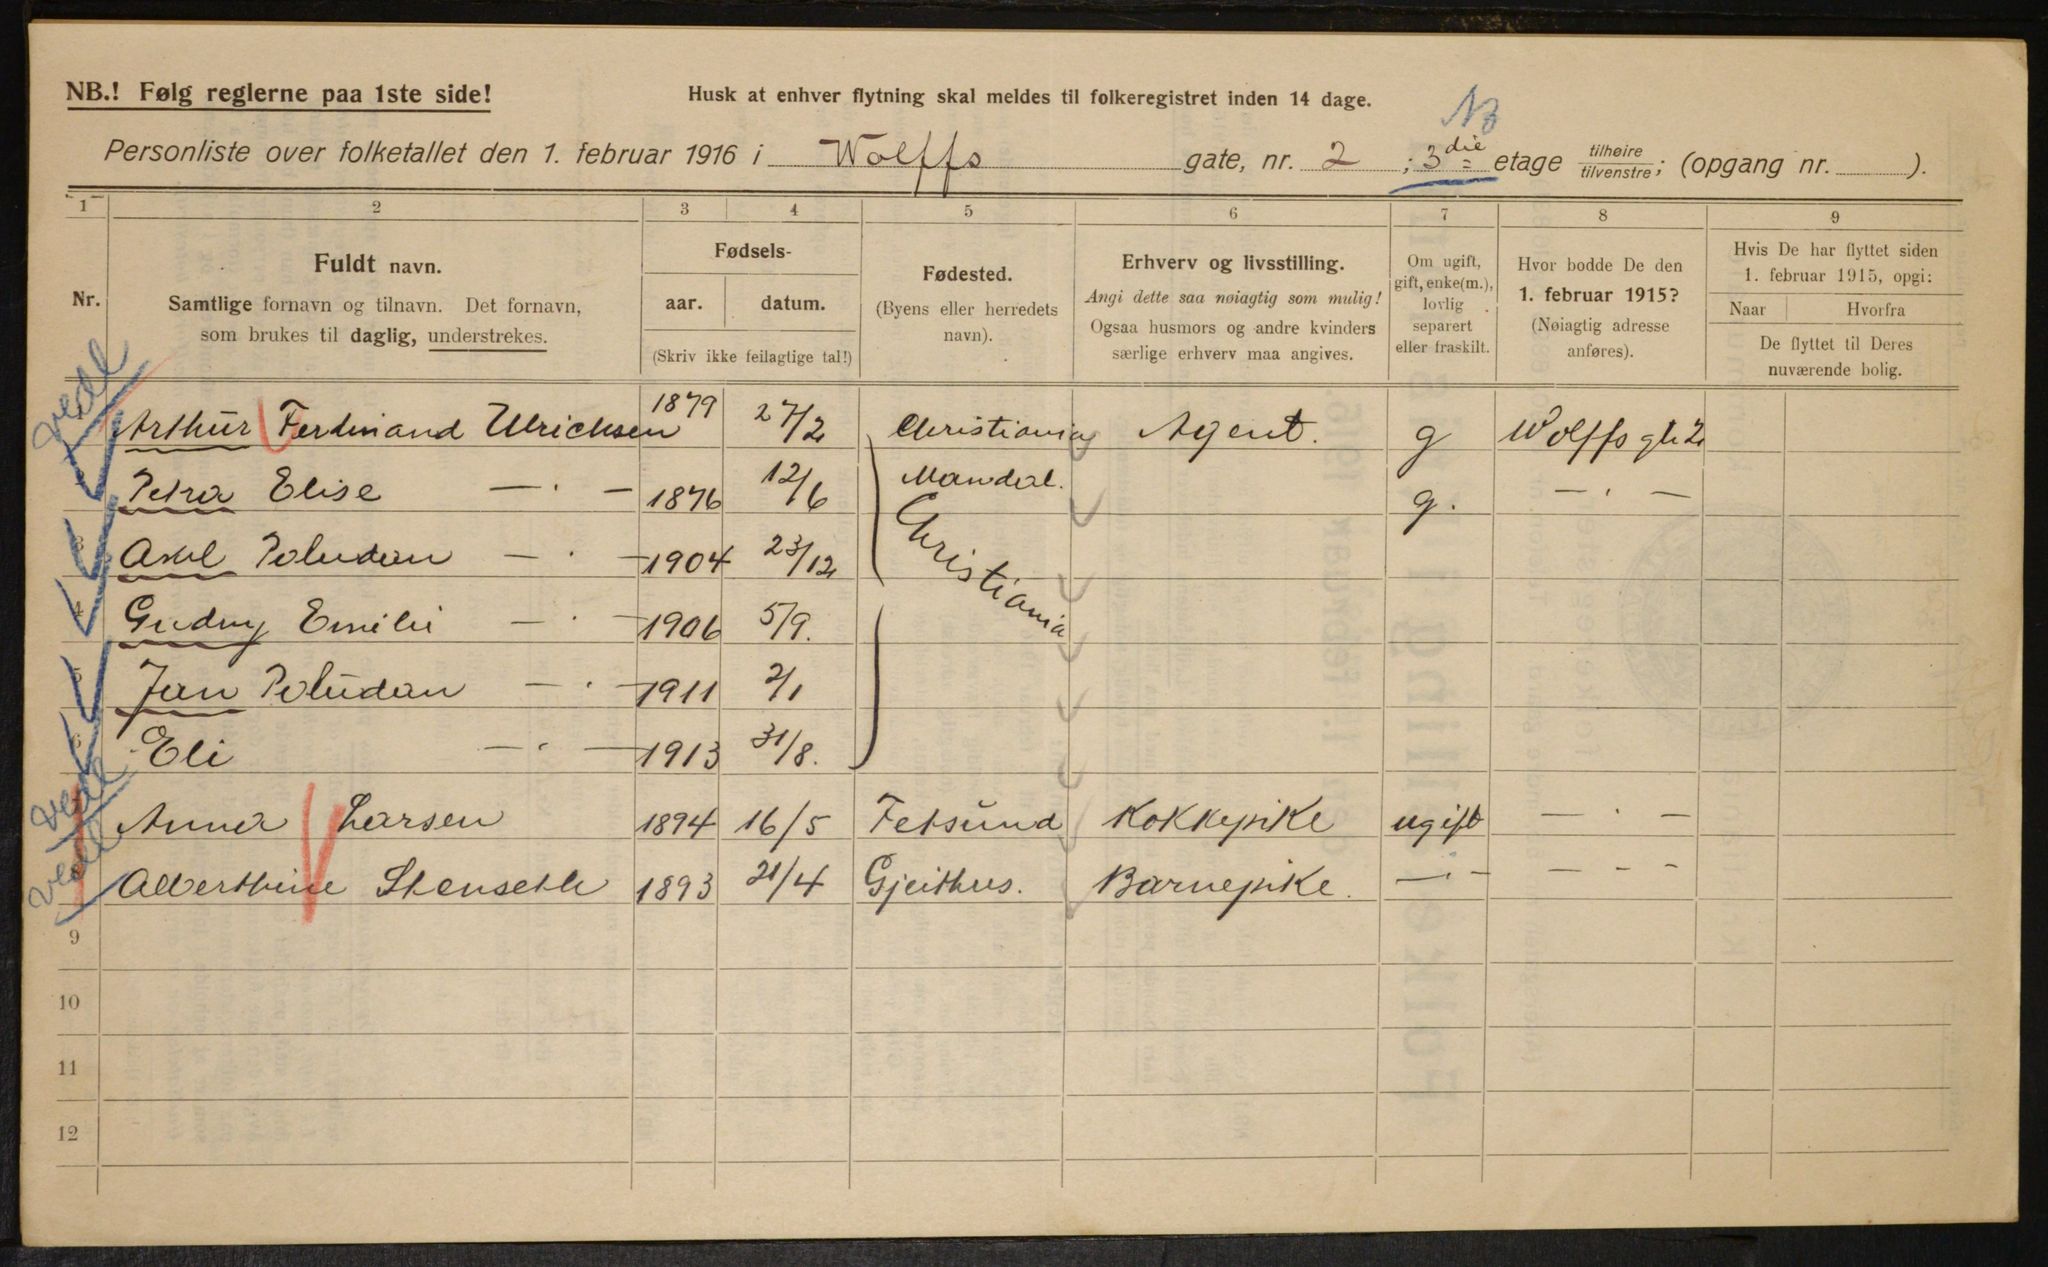 NB.! Følg reglerne paa 1ste side!
Husk at enhver flytning skal meldes til folkeregistret inden 14 dage.
NB
Personliste over folketallet den 1. februar 1916 i Wolffs gate, nr. 2 ; 3die etage tilhøire/tilvenstre; (opgang nr. ).
1 2 3 4 5 6 7 8 9
Nr.
Fuldt navn.
Samtlige fornavn og tilnavn. Det fornavn,
som brukes til daglig, understrekes.
Fødsels-
aar. datum.
(Skriv ikke feilagtige tal!)
Fødested.
(Byens eller herredets
navn).
Erhverv og livsstilling.
Angi dette saa nøiagtig som mulig!
Ogsaa husmors og andre kvinders
særlige erhverv maa angives.
Om ugift,
gift, enke(m.),
lovlig
separert
eller fraskilt.
Hvor bodde De den
1. februar 1915?
(Nøiagtig adresse
anføres).
Hvis De har flyttet siden
1. februar 1915, opgi:
Naar Hvorfra
De flyttet til Deres
nuværende bolig.
Arthur Ferdinand Ulrichsen 1879 27/2 Christiania Agent. g Wolffs gt. 2
Petra Elise — · — 1876 12/6 Mandal. g. — · —
Axel Paludan — · — 1904 23/12 Christiania
Gudny Emilie — · — 1906 5/9.
Jan Paludan — · — 1911 2/1
Eli — · — 1913 31/8.
Anna Larsen 1894 16/5 Fetsund Kokkepike ugift — · —
Alberthine Stenseth 1893 21/4 Gjeithus. Barnepike. — · — — · —
9
10
11
12